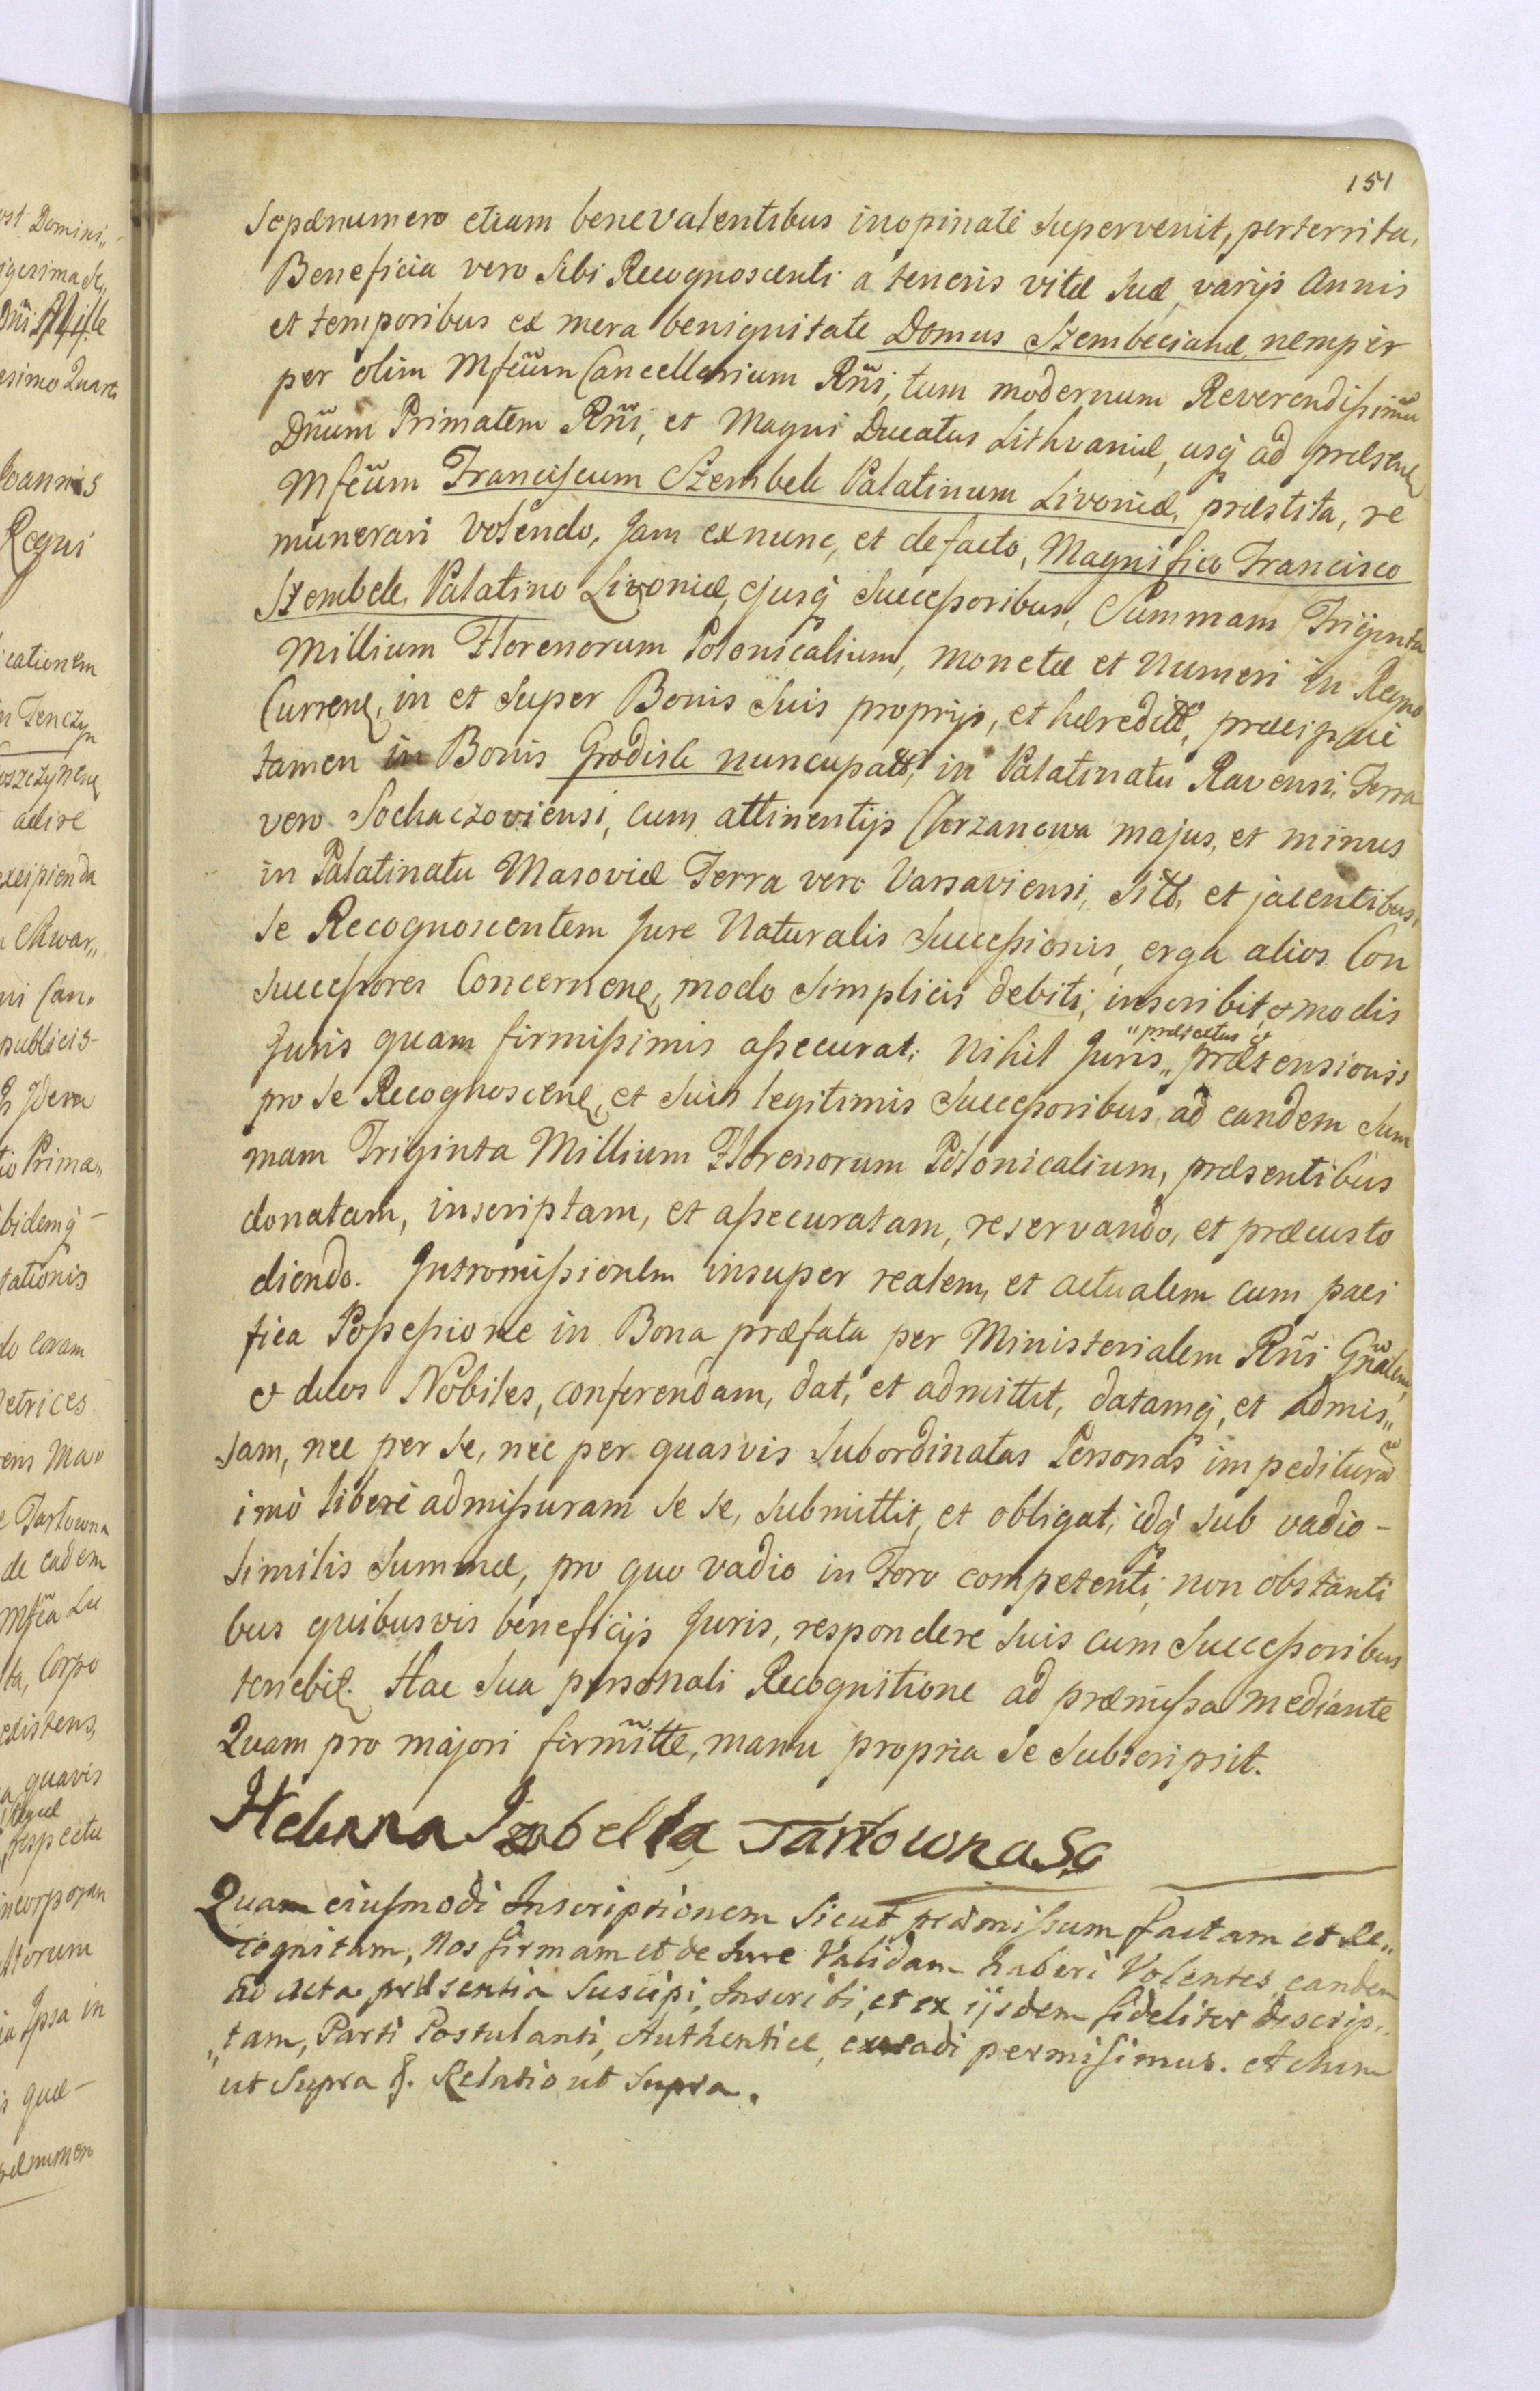 151
Sepænumero etiam benevalentibus inopinatè supervenit, perterrita,
Beneficia vero Sibi Recognoscenti a teneris vitæ suæ, varijs Annis
et temporibus ex mera benignitate Domus Szembecianæ, nempè
per olim Mfcum Cancellarium Rñi, tum modernum Reverendissimũ
Dñum Primatem Rñi, et Magni Ducatus Lithvaniæ, usq ad præsene
Mfcum Franciscum Szembek Palatinum Livoniæ, præstita, re
munerari volendo, Jam exnunc, et defacto, Magnifico Francisco
Szembek Palatino Livoniæ, ejusq Successoribus, Summam Triginta
Millium Florenorum Polonicalium, monetæ et Numeri in Regno
Curren, in et super Bonis Suis proprijs, et hæreditt, præcipuè
tamen in Bonis Grodisk nuncupatt, in Palatinatu Ravensi, Terra
vero Sochaczoviensi, cum attinentijs Chrzanowa majus, et minus
in Palatinatu Masoviæ Terra vero Varsaviensi, Sitt, et jacentibus,
Se Recognoscentem Jure Naturalis Successionis, erga alios Con
Successores Concernen, modo simplicis debiti, inscribit, et modis
Juris quam firmissimis assecurat, Nihil Juris „ prætensionis
„ prætextus et
pro se Recognoscen, et suis legitimis Successoribus, ad eandem Sum
mam Triginta Millium Florenorum Polonicalium, præsentibus
donatam, inscriptam, et assecuratam, reservando, et præcusto
diendo. Intromissionem insuper realem, et actualem cum paci
fica Possessione in Bona præfata per Ministerialem Rñi Gñalem,
et duos Nobiles, conferendam, dat, et admittit, datamq, et admis„
sam, nec per se, nec per quasvis Subordinatas Personas impeditura
imò liberè admissuram se se, submittit, et obligat, idq sub vadio -
similis Summæ, pro quo vadio in Foro competenti, non obstanti
bus quibusvis beneficijs Juris, respondere suis cum Successoribus
tenebit. Hac sua personali Recognitione ad præmissa mediante
Quam pro majori firmitte, manu propria se subscripsit.
Helenna Izabella Tarłowna SG
Quam eiusmodi Inscriptionem Sicut præmissum factam et Re„
cognitam, Nos firmam et de Jure Validam haberi Volentes, eandem
ad Acta præsentia Suscipi, Inscribi, et ex ijsdem fideliter descrip„
„tam, Parti Postulanti, Authenticè, extradi permisimus. Actum
ut Supra §. Relatio ut Supra.